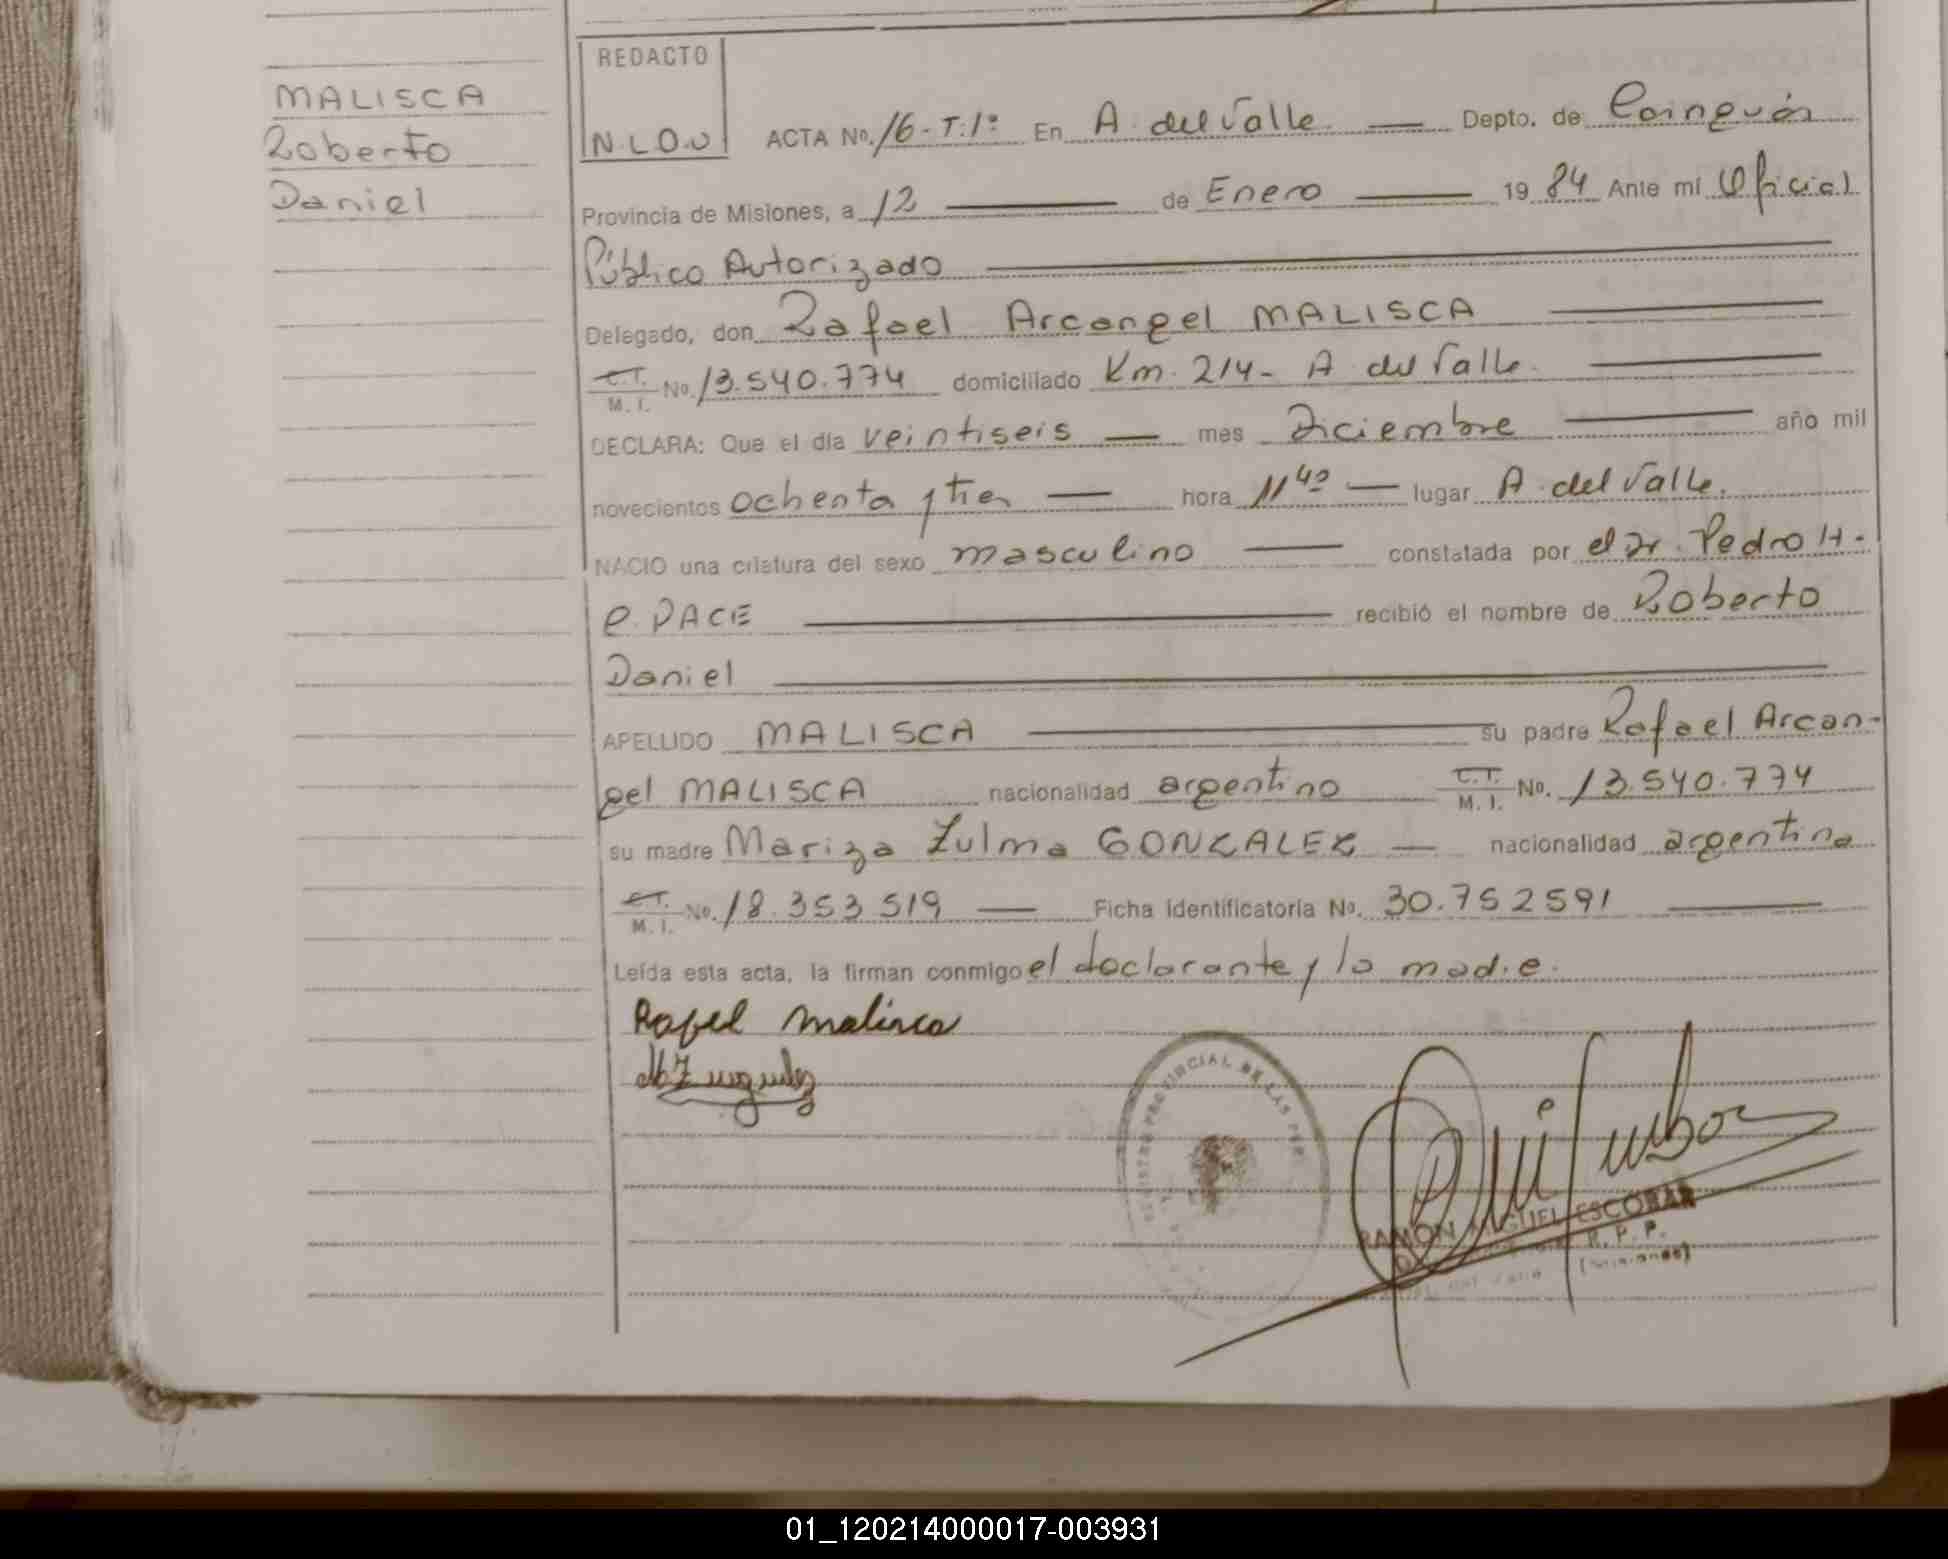 MALISCA
Roberto
Daniel
REDACTO
N.L.O.U
ACTA No. 16-T:1º En A. del Valle Depto. de Cainguás
Provincia de Misiones, a 12 de Enero 1984 Ante mí Oficial
Público Autorizado
Delegado, don Rafael Arcangel MALISCA
C.I. M.I. No. 13.540.774 domiciliado Km. 214- A del Valle.
DECLARA: Que el día veintiseis mes Diciembre año mil
novecientos ochenta y tres hora 11 40 lugar A. del Valle.
NACIO una criatura del sexo masculino constatada por el Dr. Pedro H.
e. PACE recibió el nombre de Roberto
Daniel
APELLIDO MALISCA su padre Rafael Arcan-
gel MALISCA nacionalidad argentino C.I. M.I. No. 13.540.774
su madre Mariza Zulma GONZALEZ nacionalidad argentina
C.I. M.I. No. 18.353.519 Ficha identificatoria No. 30.752591
Leída esta acta, la firman conmigo el declarante y la madre.
Rafael Malisca
REGISTRO PROVINCIAL DE LAS PER
RAMON MIGUEL ESCOBAR
R. P. P.
(Misiones)
01_120214000017-003931